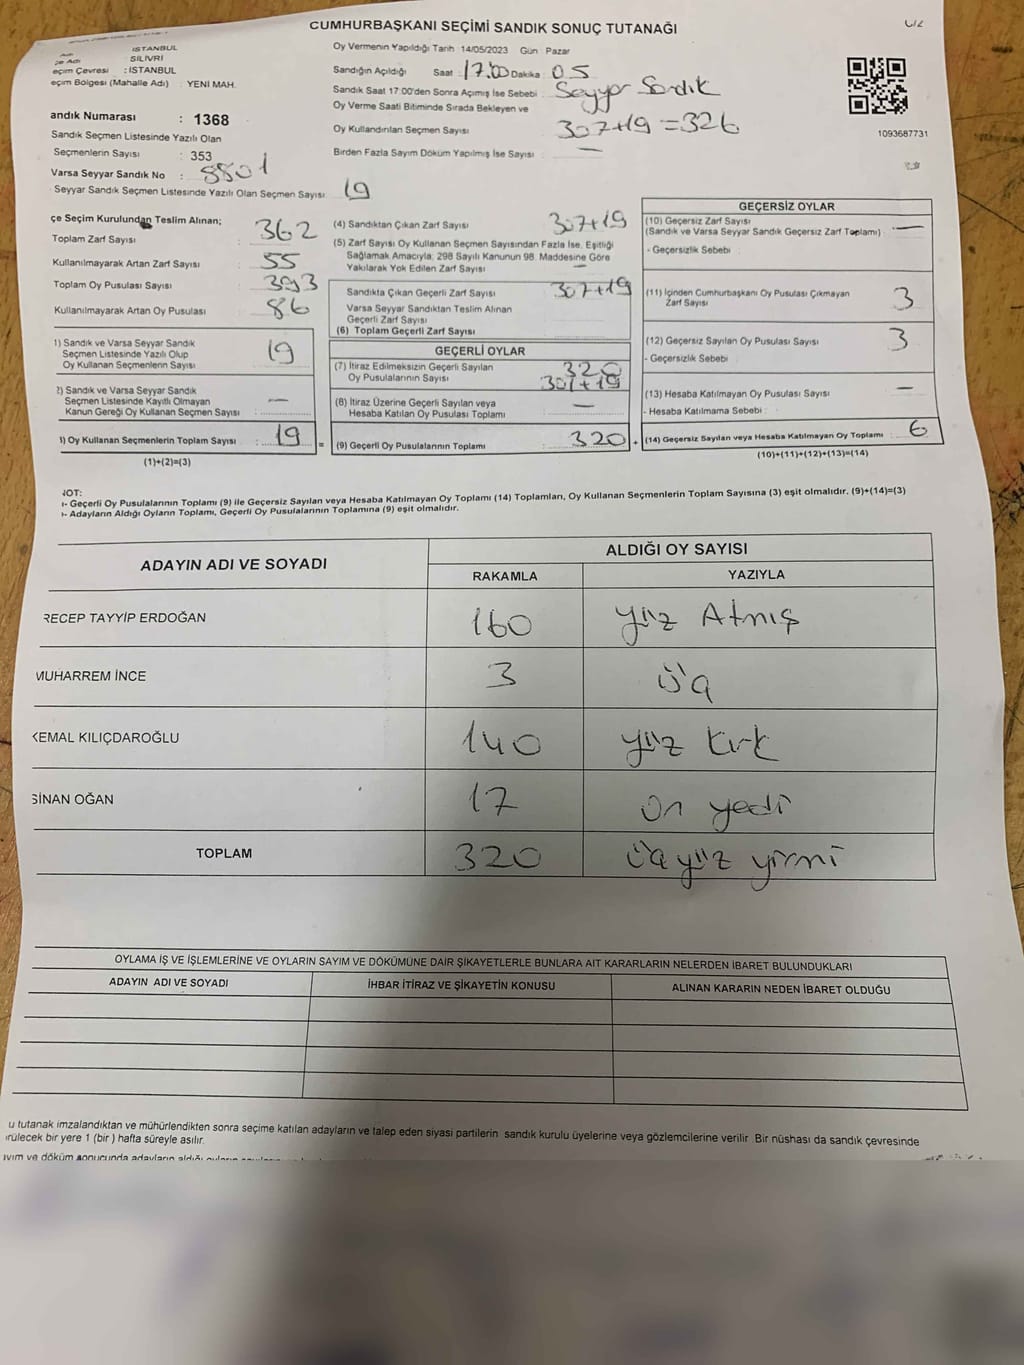 CUMHURBAŞKANI SEÇİMİ SANDIK SONUÇ TUTANAĞI
İSTANBUL
çe Adı SİLİVRİ
eçim Çevresi : İSTANBUL
eçim Bölgesi (Mahalle Adı) : YENİ MAH.
andık Numarası : 1368
Sandık Seçmen Listesinde Yazılı Olan
Seçmenlerin Sayısı : 353
Varsa Seyyar Sandık No : 8801
Seyyar Sandık Seçmen Listesinde Yazılı Olan Seçmen Sayısı : 19
Oy Vermenin Yapıldığı Tarih : 14/05/2023 Gün : Pazar
Sandığın Açıldığı Saat : 17:00 Dakika : 05
Sandık Saat 17:00'den Sonra Açılmış İse Sebebi : Seyyar Sandık
Oy Verme Saati Bitiminde Sırada Bekleyen ve
Oy Kullandırılan Seçmen Sayısı 307+19=326
Birden Fazla Sayım Döküm Yapılmış İse Sayısı : —
1093687731
çe Seçim Kurulundan Teslim Alınan;
Toplam Zarf Sayısı : 362
Kullanılmayarak Artan Zarf Sayısı : 55
Toplam Oy Pusulası Sayısı : 393
Kullanılmayarak Artan Oy Pusulası : 86
1) Sandık ve Varsa Seyyar Sandık
Seçmen Listesinde Yazılı Olup
Oy Kullanan Seçmenlerin Sayısı : 19
2) Sandık ve Varsa Seyyar Sandık
Seçmen Listesinde Kayıtlı Olmayan
Kanun Gereği Oy Kullanan Seçmen Sayısı : —
3) Oy Kullanan Seçmenlerin Toplam Sayısı : 19 =
(1)+(2)=(3)
(4) Sandıktan Çıkan Zarf Sayısı 307+19
(5) Zarf Sayısı Oy Kullanan Seçmen Sayısından Fazla İse, Eşitliği
Sağlamak Amacıyla; 298 Sayılı Kanunun 98. Maddesine Göre
Yakılarak Yok Edilen Zarf Sayısı —
Sandıkta Çıkan Geçerli Zarf Sayısı 307+19
Varsa Seyyar Sandıktan Teslim Alınan
Geçerli Zarf Sayısı
(6) Toplam Geçerli Zarf Sayısı
GEÇERLİ OYLAR
(7) İtiraz Edilmeksizin Geçerli Sayılan 320
Oy Pusulalarının Sayısı 301+19
(8) İtiraz Üzerine Geçerli Sayılan veya
Hesaba Katılan Oy Pusulası Toplamı —
(9) Geçerli Oy Pusulalarının Toplamı : 320 +
GEÇERSİZ OYLAR
(10) Geçersiz Zarf Sayısı
(Sandık ve Varsa Seyyar Sandık Geçersiz Zarf Toplamı) : —
- Geçersizlik Sebebi :
(11) İçinden Cumhurbaşkanı Oy Pusulası Çıkmayan
Zarf Sayısı 3
(12) Geçersiz Sayılan Oy Pusulası Sayısı 3
- Geçersizlik Sebebi
(13) Hesaba Katılmayan Oy Pusulası Sayısı —
- Hesaba Katılmama Sebebi :
(14) Geçersiz Sayılan veya Hesaba Katılmayan Oy Toplamı : 6
(10)+(11)+(12)+(13)=(14)
NOT:
- Geçerli Oy Pusulalarının Toplamı (9) ile Geçersiz Sayılan veya Hesaba Katılmayan Oy Toplamı (14) Toplamları, Oy Kullanan Seçmenlerin Toplam Sayısına (3) eşit olmalıdır. (9)+(14)=(3)
- Adayların Aldığı Oyların Toplamı, Geçerli Oy Pusulalarının Toplamına (9) eşit olmalıdır.
ADAYIN ADI VE SOYADI ALDIĞI OY SAYISI
RAKAMLA YAZIYLA
RECEP TAYYİP ERDOĞAN 160 yüz Atmış
MUHARREM İNCE 3 üç
KEMAL KILIÇDAROĞLU 140 yüz kırk
SİNAN OĞAN 17 on yedi
TOPLAM 320 üçyüz yirmi
OYLAMA İŞ VE İŞLEMLERİNE VE OYLARIN SAYIM VE DÖKÜMÜNE DAİR ŞİKAYETLERLE BUNLARA AİT KARARLARIN NELERDEN İBARET BULUNDUKLARI
ADAYIN ADI VE SOYADI İHBAR İTİRAZ VE ŞİKAYETİN KONUSU ALINAN KARARIN NEDEN İBARET OLDUĞU
u tutanak imzalandıktan ve mühürlendikten sonra seçime katılan adayların ve talep eden siyasi partilerin sandık kurulu üyelerine veya gözlemcilerine verilir. Bir nüshası da sandık çevresinde
örülecek bir yere 1 (bir ) hafta süreyle asılır.
ayım ve döküm sonucunda adayların aldığı